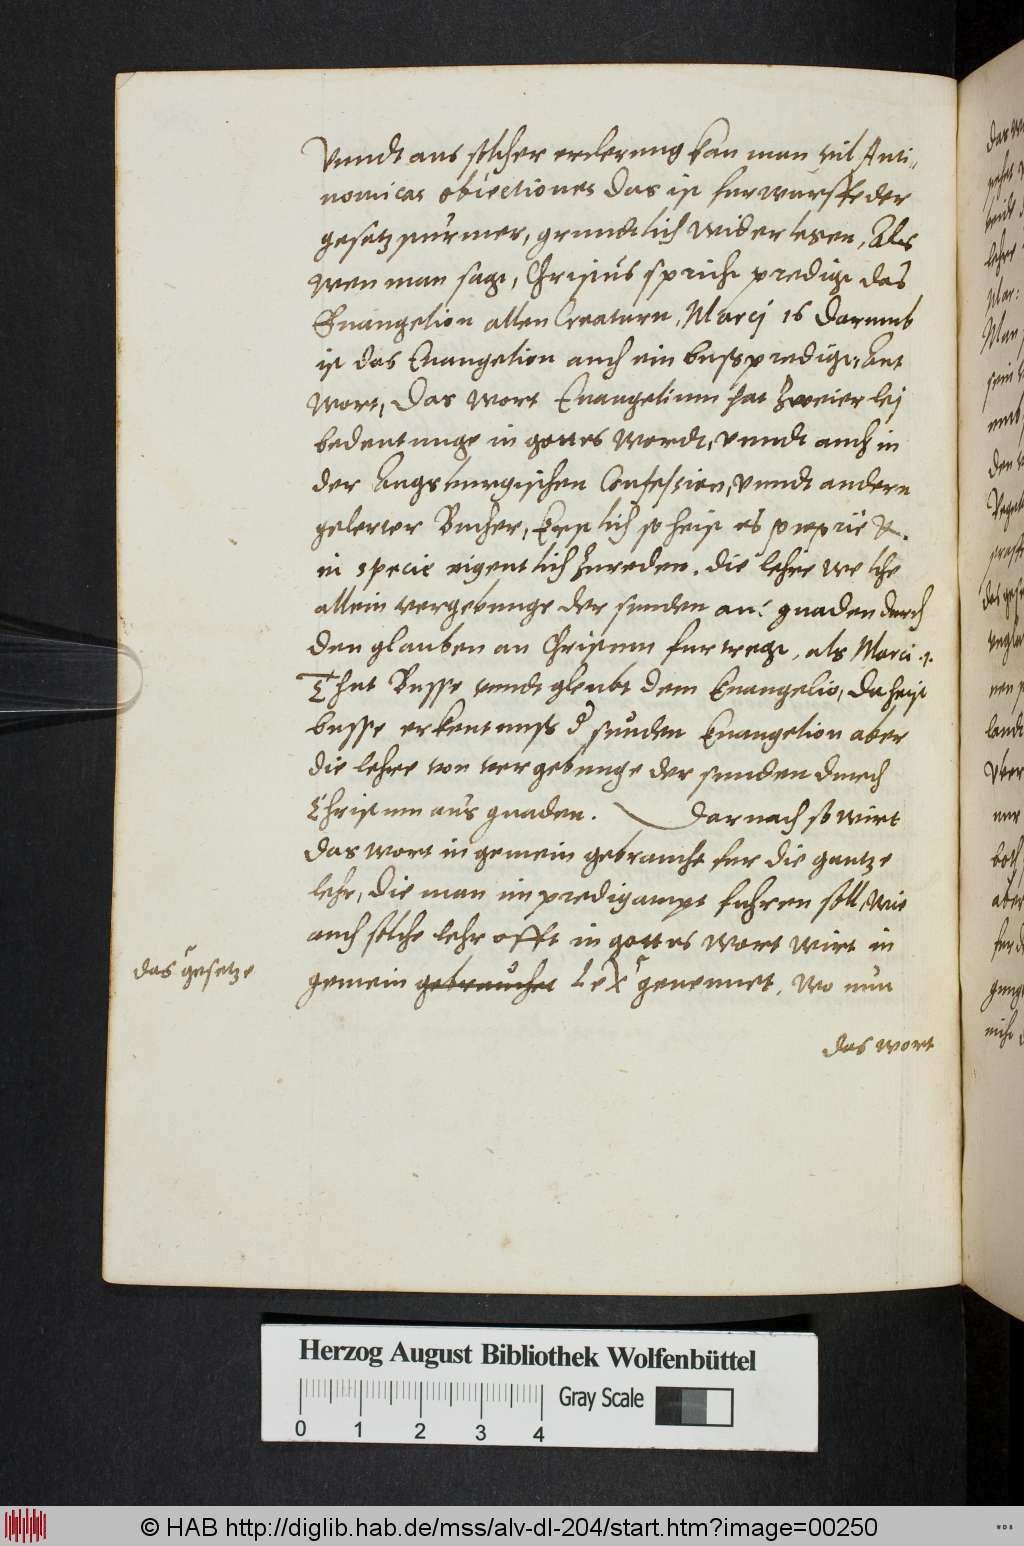 Vnndt aus solcher erclerung kan man vil Anti„
nomicas obiectiones das ist furwurffe der
gesetz sturmer, gruntlich widerlesen, Als
wen man sagt, Christus spricht prediget das
Euangelion allen Creaturn, Marcj 16 darumb
ist das Euangelion auch ein busspredigt, Ant
wort, Das wort Euangelium hat zweierlej
bedeutunge in gottes wordt, vnndt auch in
der Augsburgischen Confession, vnndt andern
gelerter Bucher, Erstlich so heist es proprië &.
in specie eigentlich zureden, die lehre welche
allein vergebunge der sunden aus gnaden durch
den glauben an Christum furtregt, als Marci .1.
Thut Busse vnndt gleubt dem Euangelio, da heist
busse erkentnuss d' sunden Euangelion aber
die lehre von vergebunge der sunden durch
Christum aus gnaden. Darnach so wirt
das wort in gemein gebraucht fur die gantze
lehr, die man im predigampt fuhren soll, wie
auch solche lehr offt in gottes wort wirt in
das gesetze
gemein gebrauchet Lex genennet, wo nun
das wort
Herzog August Bibliothek Wolfenbüttel
0 1 2 3 4
Gray Scale
© HAB http://diglib.hab.de/mss/alv-dl-204/start.htm?image=00250